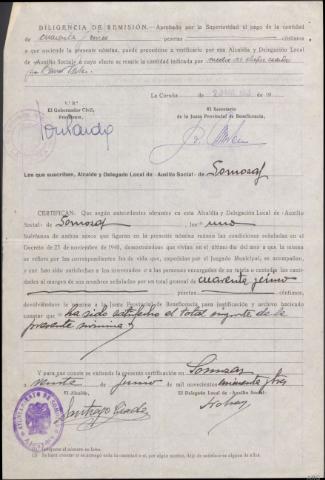 DILIGENCIA DE REMISIÓN.- Aprobado por la Superioridad el pago de la cantidad
de cuarenta pesetas céntimos
a que asciende la presente nómina, puede precederse a verificarlo por esa Alcaldía y Delegación Local
de Auxilio Social a cuyo efecto se remite la cantidad indicada por medio de
La Coruña de de 19
V.º B.º
El Gobernador Civil,
Presidente,
El Secretario
de la Junta Provincial de Beneficencia,
Los que suscriben, Alcalde y Delegado Local de «Auxilio Social» de Somozas
CERTIFICAN: Que según antecedentes obrantes en esta Alcaldía y Delegación Local de «Auxilio
Social» de Somozas, los uno
huérfanos de ambos sexos que figuran en la presente nómina reúnen las condiciones señaladas en el
Decreto de 23 de noviembre de 1940, demostrándose que vivían en el último día del mes a que la misma se
refiere por las correspondientes fes de vida que, expedidas por el Juzgado Municipal, se acompañan,
y que han sido satisfechas a los interesados o a las personas encargadas de su tutela o custodia las cantidades
al margen de sus nombres señaladas por un total general de cuarenta
pesetas céntimos,
devolviéndose la nómina a la Junta Provincial de Beneficencia para justificación y archivo haciendo
constar que ha sido satisfecho el total importe de la
presente nómina
Y para que conste se extiende la presente certificación en Somozas
a veinte de junio de mil novecientos cincuenta y tres
El Alcalde,
El Delegado Local de «Auxilio Social»
Santiago
(1) Indíquese el número en letra.